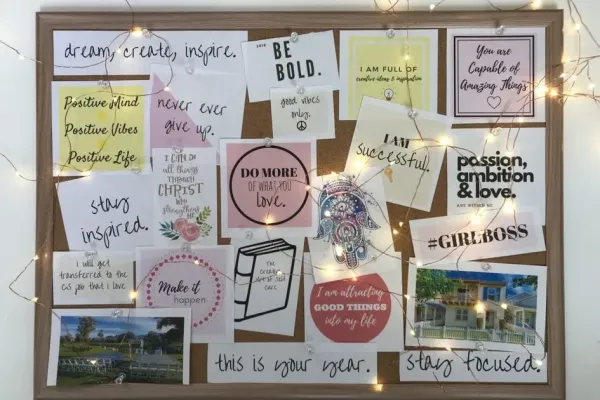 dream, create, inspire.
2018 BE
BOLD.
I AM FULL OF
creative ideas & inspiration
You are
Capable of
Amazing Things
Positive Mind
Positive Vibes
Positive Life
never ever
give up.
good vibes
only.
I AM
successful.
I CAN DO
all things
THROUGH
CHRIST
WHO
strengthens
ME
DO MORE
OF WHAT YOU
love.
passion,
ambition
& love.
stay
inspired.
#GIRLBOSS
I will get
transferred to the
job that I love
Make it
happen.
THE
SELF
I am attracting
GOOD THINGS
into my life
this is your year.
stay focused.